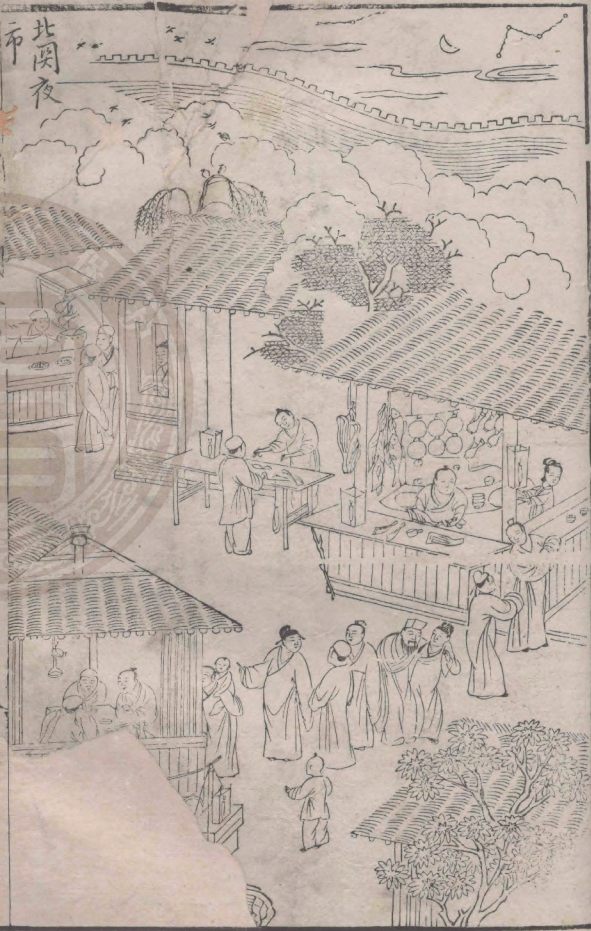 北関夜
市